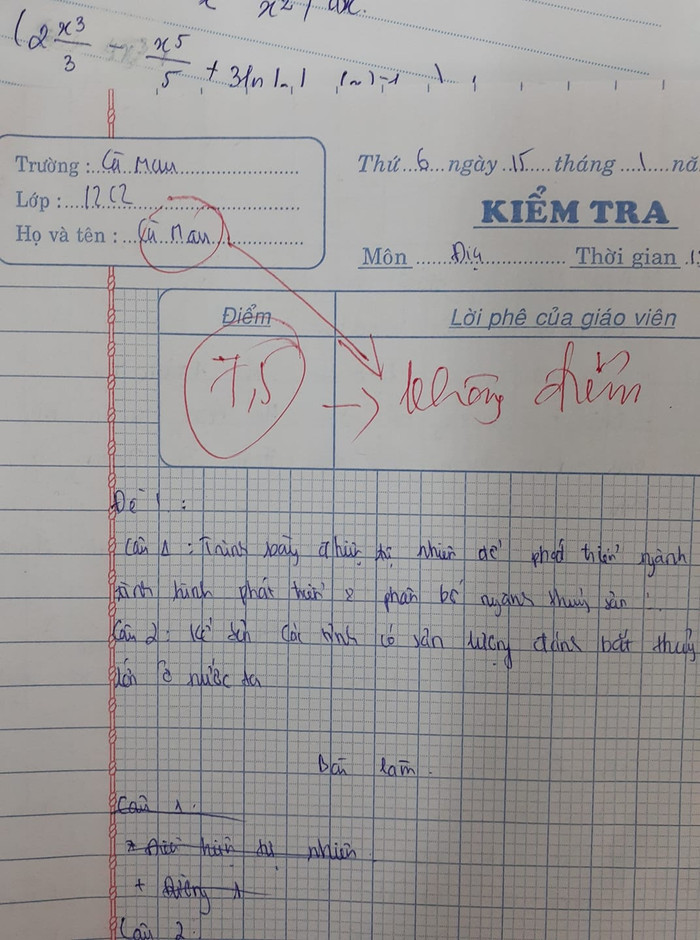 x² dx.
(2 x³/3 - x⁵/5 + 3ln
Trường : Cà Mau
Thứ 6 ngày 15 tháng 1 nă
Lớp : 12C2
KIỂM TRA
Họ và tên : Cà Mau
Môn Địa Thời gian 1
Điểm
Lời phê của giáo viên
7,5 → không điểm
Đề 1 :
Câu 1 : Trình bày tự nhiên để phát triển ngành
tình hình phát triển & phân bố ngành thuỷ sản
Câu 2 : Kể tên các tỉnh có sản lượng đánh bắt thuỷ
lớn ở nước ta
Bài làm.
Câu 1.
* Điều kiện tự nhiên
+
Câu 2